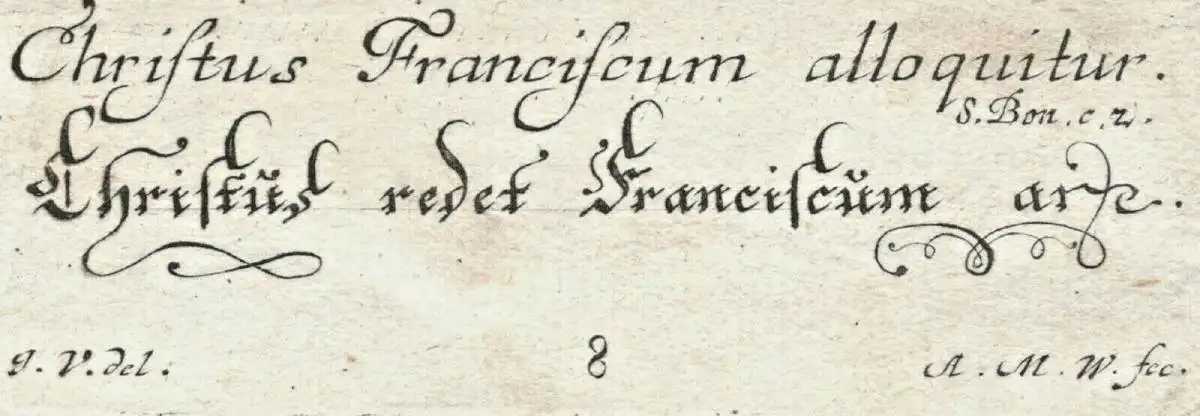 Chriſtus Franciſcum alloquitur.
S. Bon. c. 2.
Chriſtŭs redet Franciſcŭm an.
J. V. del. 8 A. M. W. fec.